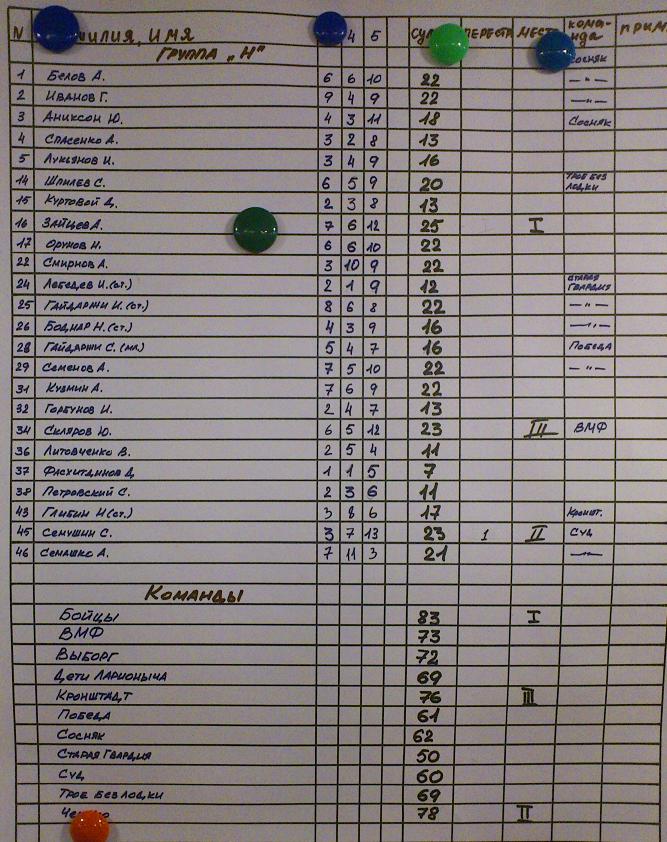 N ИЛИЯ, ИМЯ 4 5 СУ ПЕРЕСТР МЕСТ КОМАНДА ПРИМ
ГРУППА „Н" СОСНЯК
1 БЕЛОВ А. 6 6 10 22 —"—
2 ИВАНОВ Г. 9 4 9 22 —"—
3 АНИКСОН Ю. 4 3 11 18 СОСНЯК
4 СПАСЕНКО А. 3 2 8 13
5 ЛУКЬЯНОВ И. 3 4 9 16
14 ШПИЛЕВ С. 6 5 9 20 ТРОЕ БЕЗ ЛОДКИ
15 КУРТОВОЙ Д. 2 3 8 13
16 ЗАЙЦЕВ А. 7 6 12 25 I
17 ОРУНОВ Н. 6 6 10 22
22 СМИРНОВ А. 3 10 9 22
24 ЛЕБЕДЕВ И.(СТ.) 2 1 9 12 СТАРАЯ ГВАРДИЯ
25 ГАЙДАРЖИ И.(СТ.) 8 6 8 22 —"—
26 БОДНАР Н.(СТ.) 4 3 9 16 —"—
28 ГАЙДАРЖИ С.(МЛ.) 5 4 7 16 ПОБЕДА
29 СЕМЕНОВ А. 7 5 10 22 —"—
31 КУЗМИН А. 7 6 9 22
32 ГОРБУНОВ И. 2 4 7 13
34 СКЛЯРОВ Ю. 6 5 12 23 III ВМФ
36 ЛИТОВЧЕНКО В. 2 5 4 11
37 ФАСХИТДИНОВ Д. 1 1 5 7
38 ПЕТРОВСКИЙ С. 2 3 6 11
43 ГЛИБИН И(СТ.) 3 8 6 17 КРОНШТ.
45 СЕМУШИН С. 3 7 13 23 1 II СУД
46 СЕМАШКО А. 7 11 3 21 —"—
КОМАНДЫ
БОЙЦЫ 83 I
ВМФ 73
ВЫБОРГ 72
ДЕТИ ЛАРИОНЫЧА 69
КРОНШТАДТ 76 III
ПОБЕДА 61
СОСНЯК 62
СТАРАЯ ГВАРДИЯ 50
СУД 60
ТРОЕ БЕЗ ЛОДКИ 69
78 II